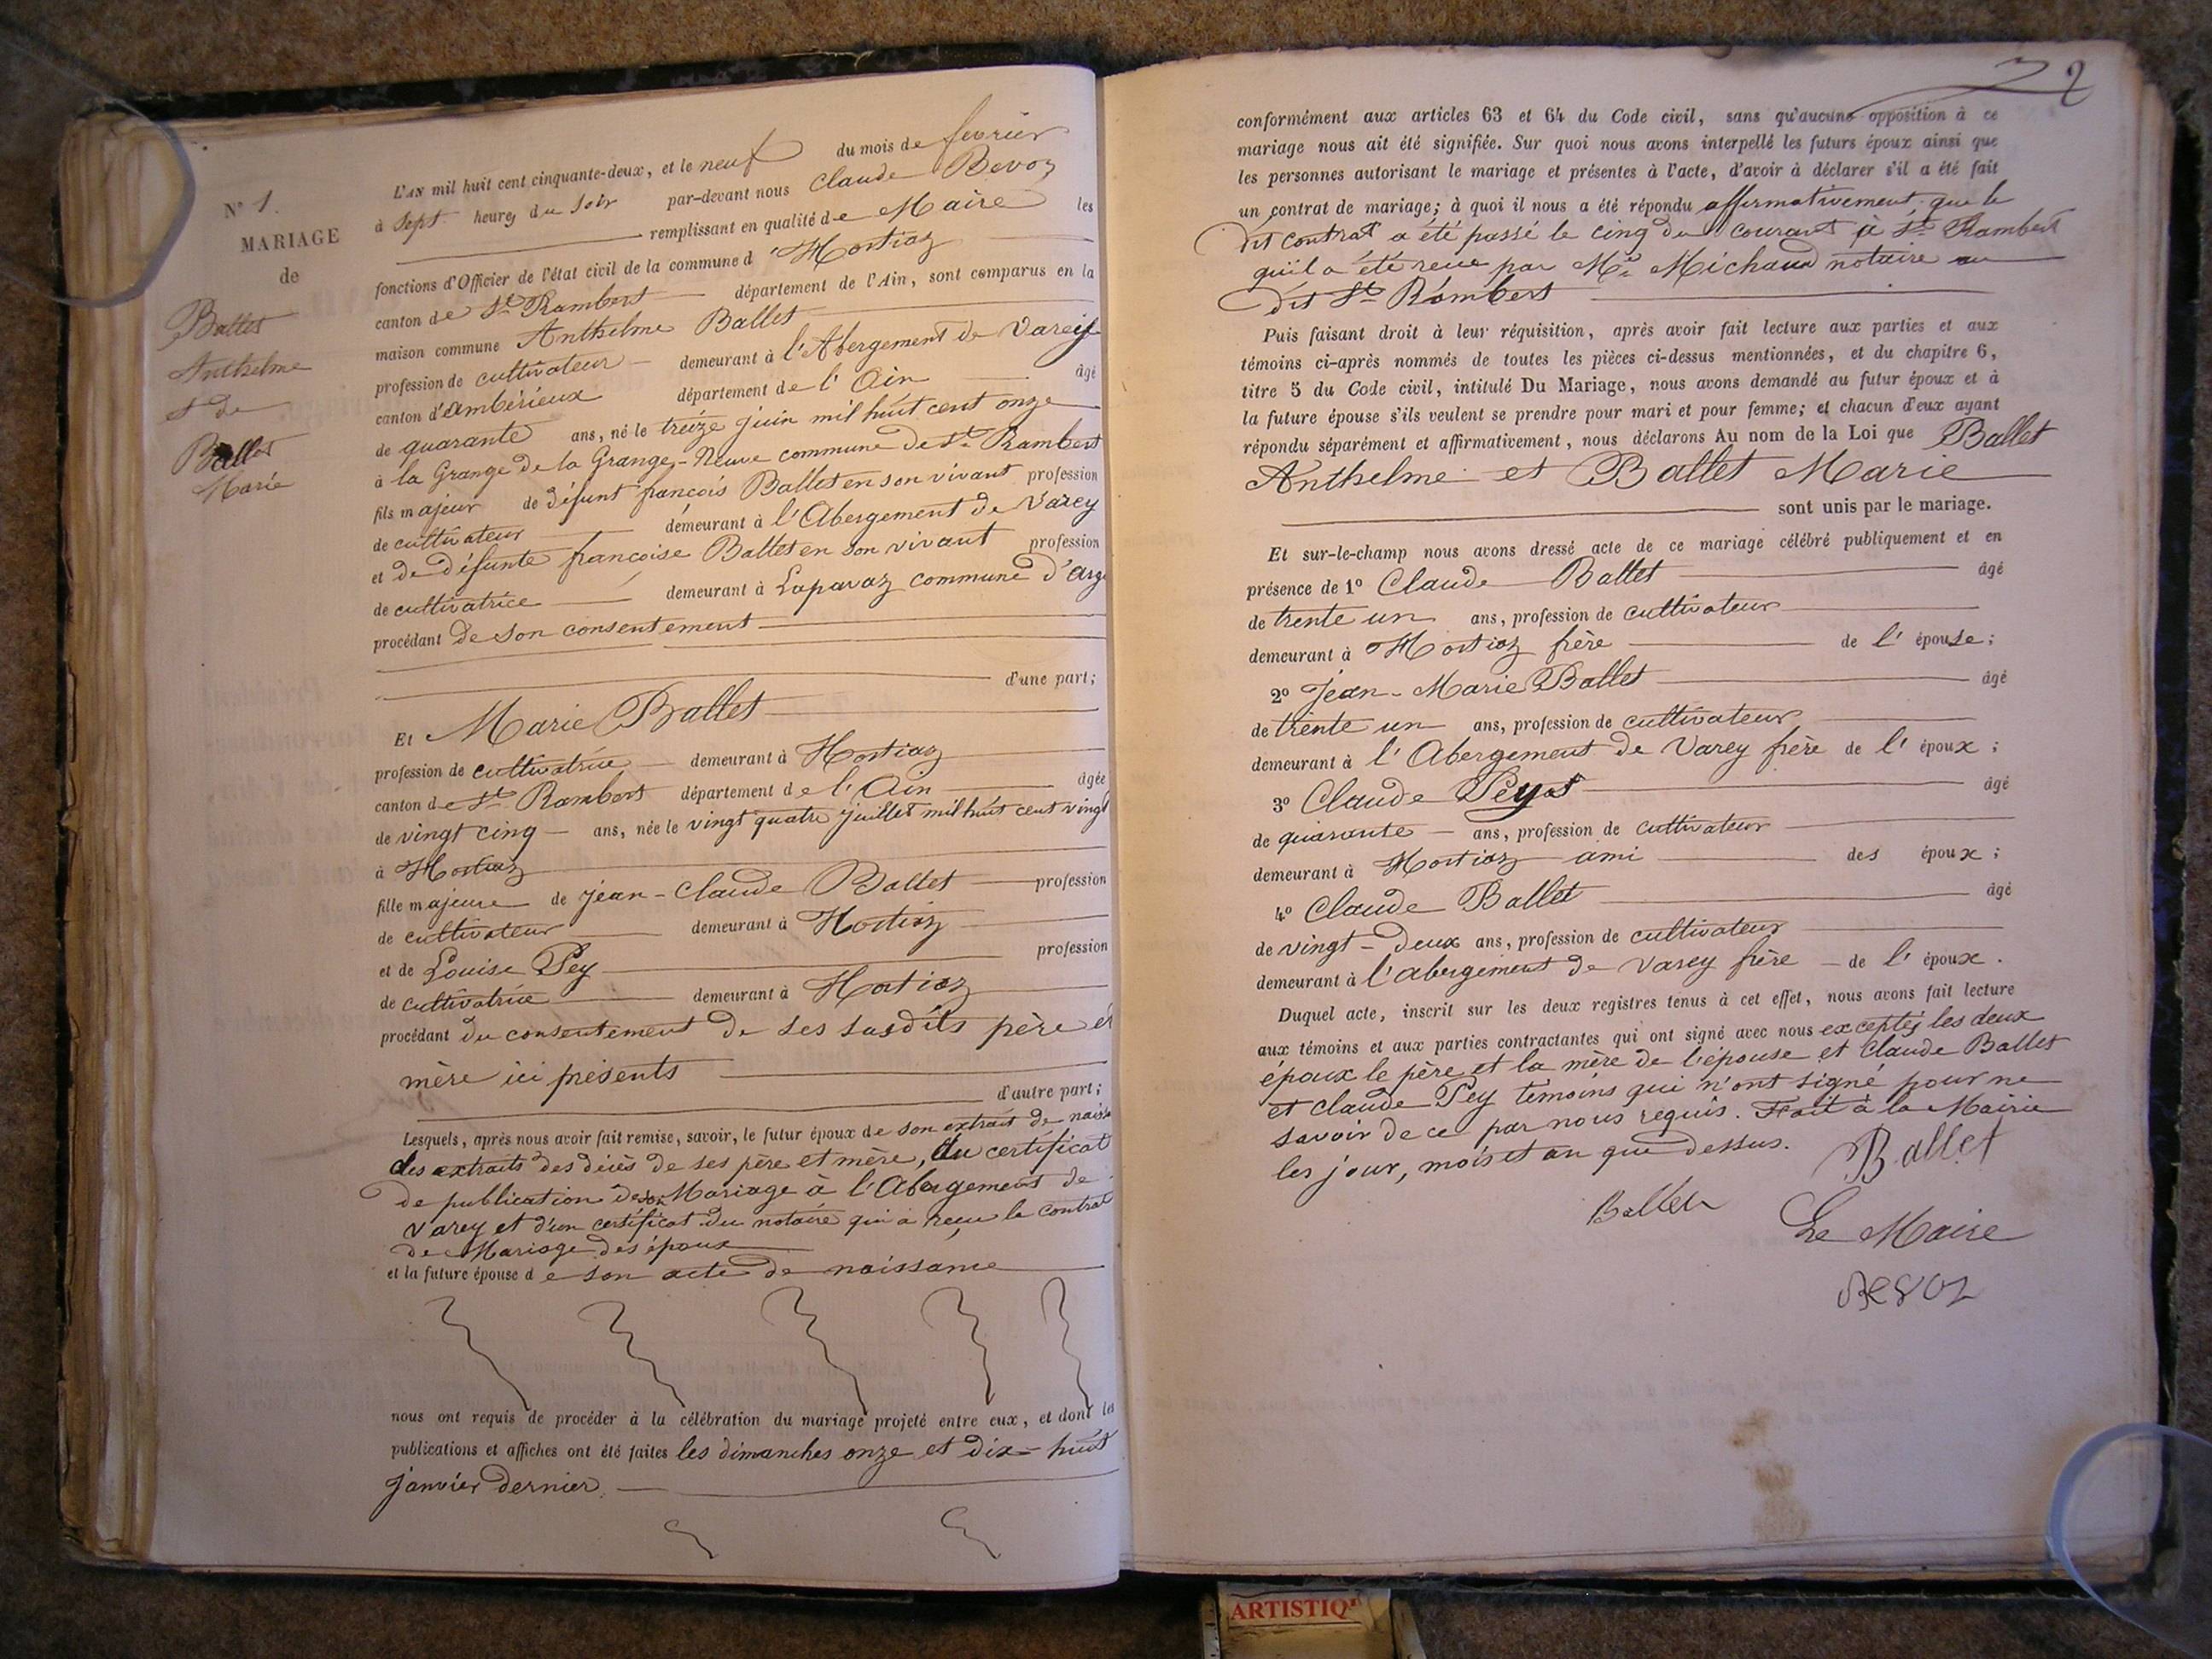 N° 1.
MARIAGE
de
Ballet
Anthelme
et de
Ballet
Marie
L'AN mil huit cent cinquante-deux, et le neuf du mois de fevrier
à sept heures du soir par-devant nous Claude Bevoz
remplissant en qualité de Maire les
fonctions d'Officier de l'état civil de la commune d'Hostiaz
canton de St Rambert département de l'Ain, sont comparus en la
maison commune Anthelme Ballet
profession de cultivateur demeurant à l'Abergement de Varey
canton d'ambérieux département de l'Ain âgé
de quarante ans, né le treize juin mil huit cent onze
à la Grange de la Grange-Neuve commune de St Rambert
fils majeur de défunt françois Ballet en son vivant profession
de cultivateur demeurant à l'Abergement de Varey
et de défunte françoise Ballet en son vivant profession
de cultivatrice demeurant à Laparaz commune d'arg
procédant de son consentement
d'une part;
Et Marie Ballet
profession de cultivatrice demeurant à Hostiaz
canton de St Rambert département de l'Ain âgée
de vingt cinq ans, née le vingt quatre juillet mil huit cent vingt
à Hostiaz
fille majeure de jean-Claude Ballet profession
de cultivateur demeurant à Hostiaz
et de Louise Pey profession
de cultivatrice demeurant à Hostiaz
procédant du consentement de ses susdits père et
mère ici présents
d'autre part;
Lesquels, après nous avoir fait remise, savoir, le futur époux de son extrait de naiss
des extraits des décès de ses père et mère, du certificat
de publication de son Mariage à l'Abergement de
Varey et d'un certificat du notaire qui a reçu le contrat
de Mariage des époux
et la future épouse de son acte de naissance
nous ont requis de procéder à la célébration du mariage projeté entre eux, et dont les
publications et affiches ont été faites les dimanches onze et dix-huit
janvier dernier.
2
conformément aux articles 63 et 64 du Code civil, sans qu'aucune opposition à ce
mariage nous ait été signifiée. Sur quoi nous avons interpellé les futurs époux ainsi que
les personnes autorisant le mariage et présentes à l'acte, d'avoir à déclarer s'il a été fait
un contrat de mariage; à quoi il nous a été répondu affirmativement que le
dit contrat a été passé le cinq du courant à St Rambert
qu'il a été reçue par Me Michaud notaire au
dit St Rambert
Puis faisant droit à leur réquisition, après avoir fait lecture aux parties et aux
témoins ci-après nommés de toutes les pièces ci-dessus mentionnées, et du chapitre 6,
titre 5 du Code civil, intitulé Du Mariage, nous avons demandé au futur époux et à
la future épouse s'ils veulent se prendre pour mari et pour femme; et chacun d'eux ayant
répondu séparément et affirmativement, nous déclarons Au nom de la Loi que Ballet
Anthelme et Ballet Marie
sont unis par le mariage.
Et sur-le-champ nous avons dressé acte de ce mariage célébré publiquement et en
présence de 1° Claude Ballet âgé
de trente un ans, profession de cultivateur
demeurant à Hostiaz frère de l'épouse;
2° Jean-Marie Ballet âgé
de trente un ans, profession de cultivateur
demeurant à l'Abergement de Varey frère de l'époux;
3° Claude Pey âgé
de quarante ans, profession de cultivateur
demeurant à Hostiaz ami des époux;
4° Claude Ballet âgé
de vingt-deux ans, profession de cultivateur
demeurant à l'abergement de Varey frère de l'époux.
Duquel acte, inscrit sur les deux registres tenus à cet effet, nous avons fait lecture
aux témoins et aux parties contractantes qui ont signé avec nous exceptés les deux
époux le père et la mère de l'épouse et Claude Ballet
et Claude Pey témoins qui n'ont signé pour ne
savoir de ce par nous requis. Fait à la Mairie
les jour, mois et an que dessus. Ballet
Ballet
Le Maire
Bevoz
ARTISTIQ